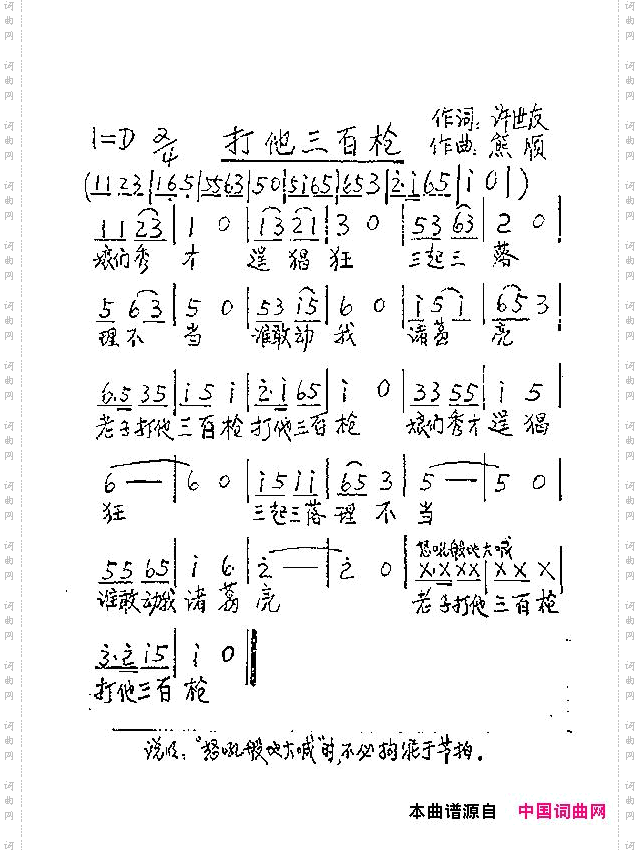 1=D 2/4 打他三百枪
作词:许世友
作曲:熊顺
(11 23|1 6 5|55 63|5 0|5i65|65 3|2·i 65|i 0|)
11 23|1 0|13 21|3 0|53 63|2 0|
娘们秀 才 逞 猖 狂 三起三 落
5 63|5 0|53 i5|6 0|i 5 i|65 3|
理不 当 谁敢动 我 诸葛 亮
6·5 35|i 5 i|2·i 65|i 0|33 55|i 5|
老子打他三百枪 打他三百 枪 娘们秀才 逞 猖
6 —|6 0|i5 ii|65 3|5 —|5 0|
狂 三起三落 理 不 当
55 65|i 6·|2 —|2 0|X·X XX|X X X|
怒吼般地大喊
谁敢动我 诸 葛 亮 老子打他 三百枪
3·2 i5|i 0‖
打他三百 枪
说明:"怒吼般地大喊"时,不必拘泥于节拍。
本曲谱源自 中国词曲网
词曲网